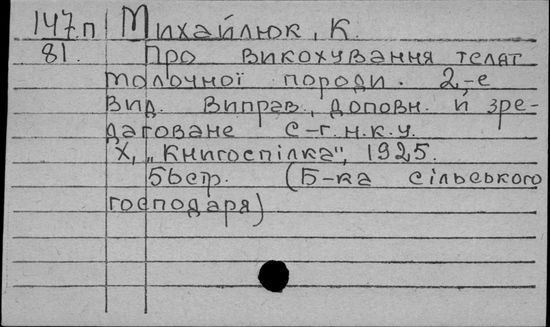 147п Михайлюк, К.
81. Про викохування телят
молочної породи. 2,-е
вид. виправ., доповн. й зре-
даговане с-г.н.к.у.
Х, "Книгоспілка", 1925.
56стр. (Б-ка сільського
господаря)